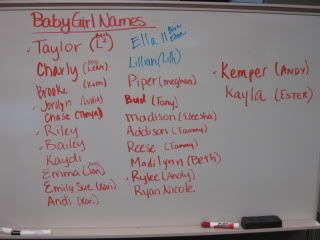 Baby Girl Names
Taylor
Charly (Leah)
Brooke (Kim)
Jordyn
Chase (Tanya)
Riley
Bailey
Kaydi
Emma (Jan)
Emily Sue (Kari)
Andi (Kari)
Ella
Lillian (Lilli)
Piper (meghan)
Bud (Tony)
Madison (Eleesha)
Addison (Tammy)
Reese (Tammy)
Madilynn (Beth)
Rylee (Andy)
Ryan Nicole
Kemper (ANDY)
Kayla (ESTER)